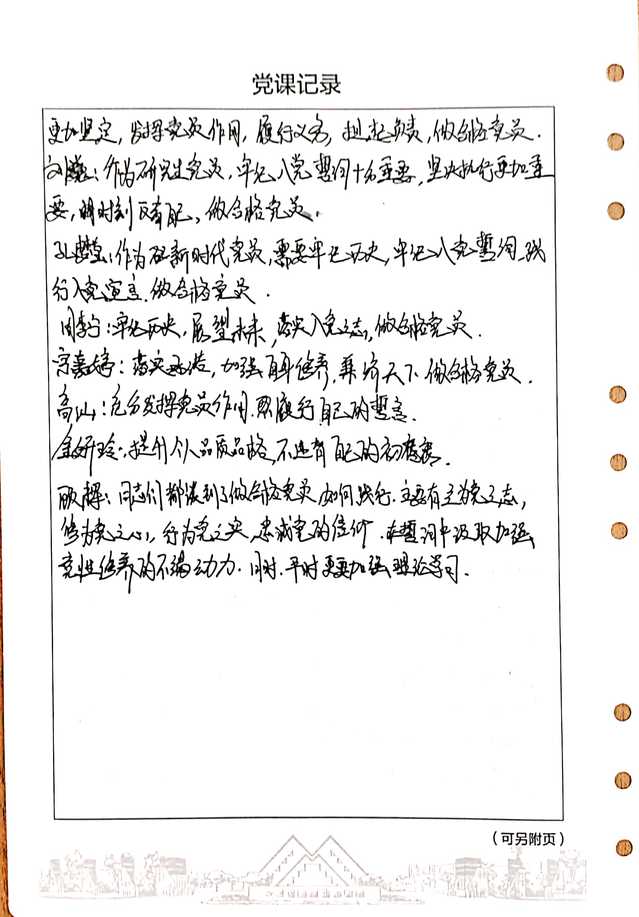 党课记录
更加坚定，发挥党员作用，履行义务，担起负责，做合格党员．
刘：作为研究生党员，牢记入党誓词十分重要，坚决执行更加重
要，时时刻反自己，做合格党员．
孔：作为新时代党员，需要牢记历史，牢记入党誓词，践
行入党宣言．做合格党员．
周：牢记历史，展望未来，落实入党之志，做合格党员．
落实，加强自身修养，兼济天下．做合格党员．
高山：充分发挥党员作用．履行自己的誓言．
金妍玲：提升个人品质品格，不违背自己的初衷．
顾辉：同志们都谈到了做合格党员，如何践行．主要有立为党之志，
修为党之心，行为党之实，忠诚党的信仰．在誓词中汲取加强
党性修养的不竭动力．同时．平时更要加强理论学习．
（可另附页）